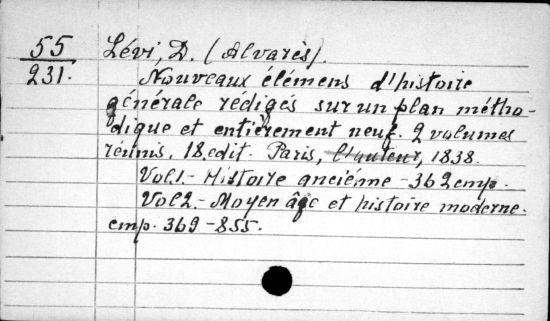 55 Lévi, D. (Alvarès).
231. Nouveaux élémens d'histoire
générale rédigés sur un plan métho-
dique et entièrement neuf. 2 volumes
réunis. 18. edit. Paris, l'auteur, 1838.
Vol.1.- Histoire anciéme - 362 стр.
Vol 2.- Moyen âge et histoire moderne.
стр. 369-855.